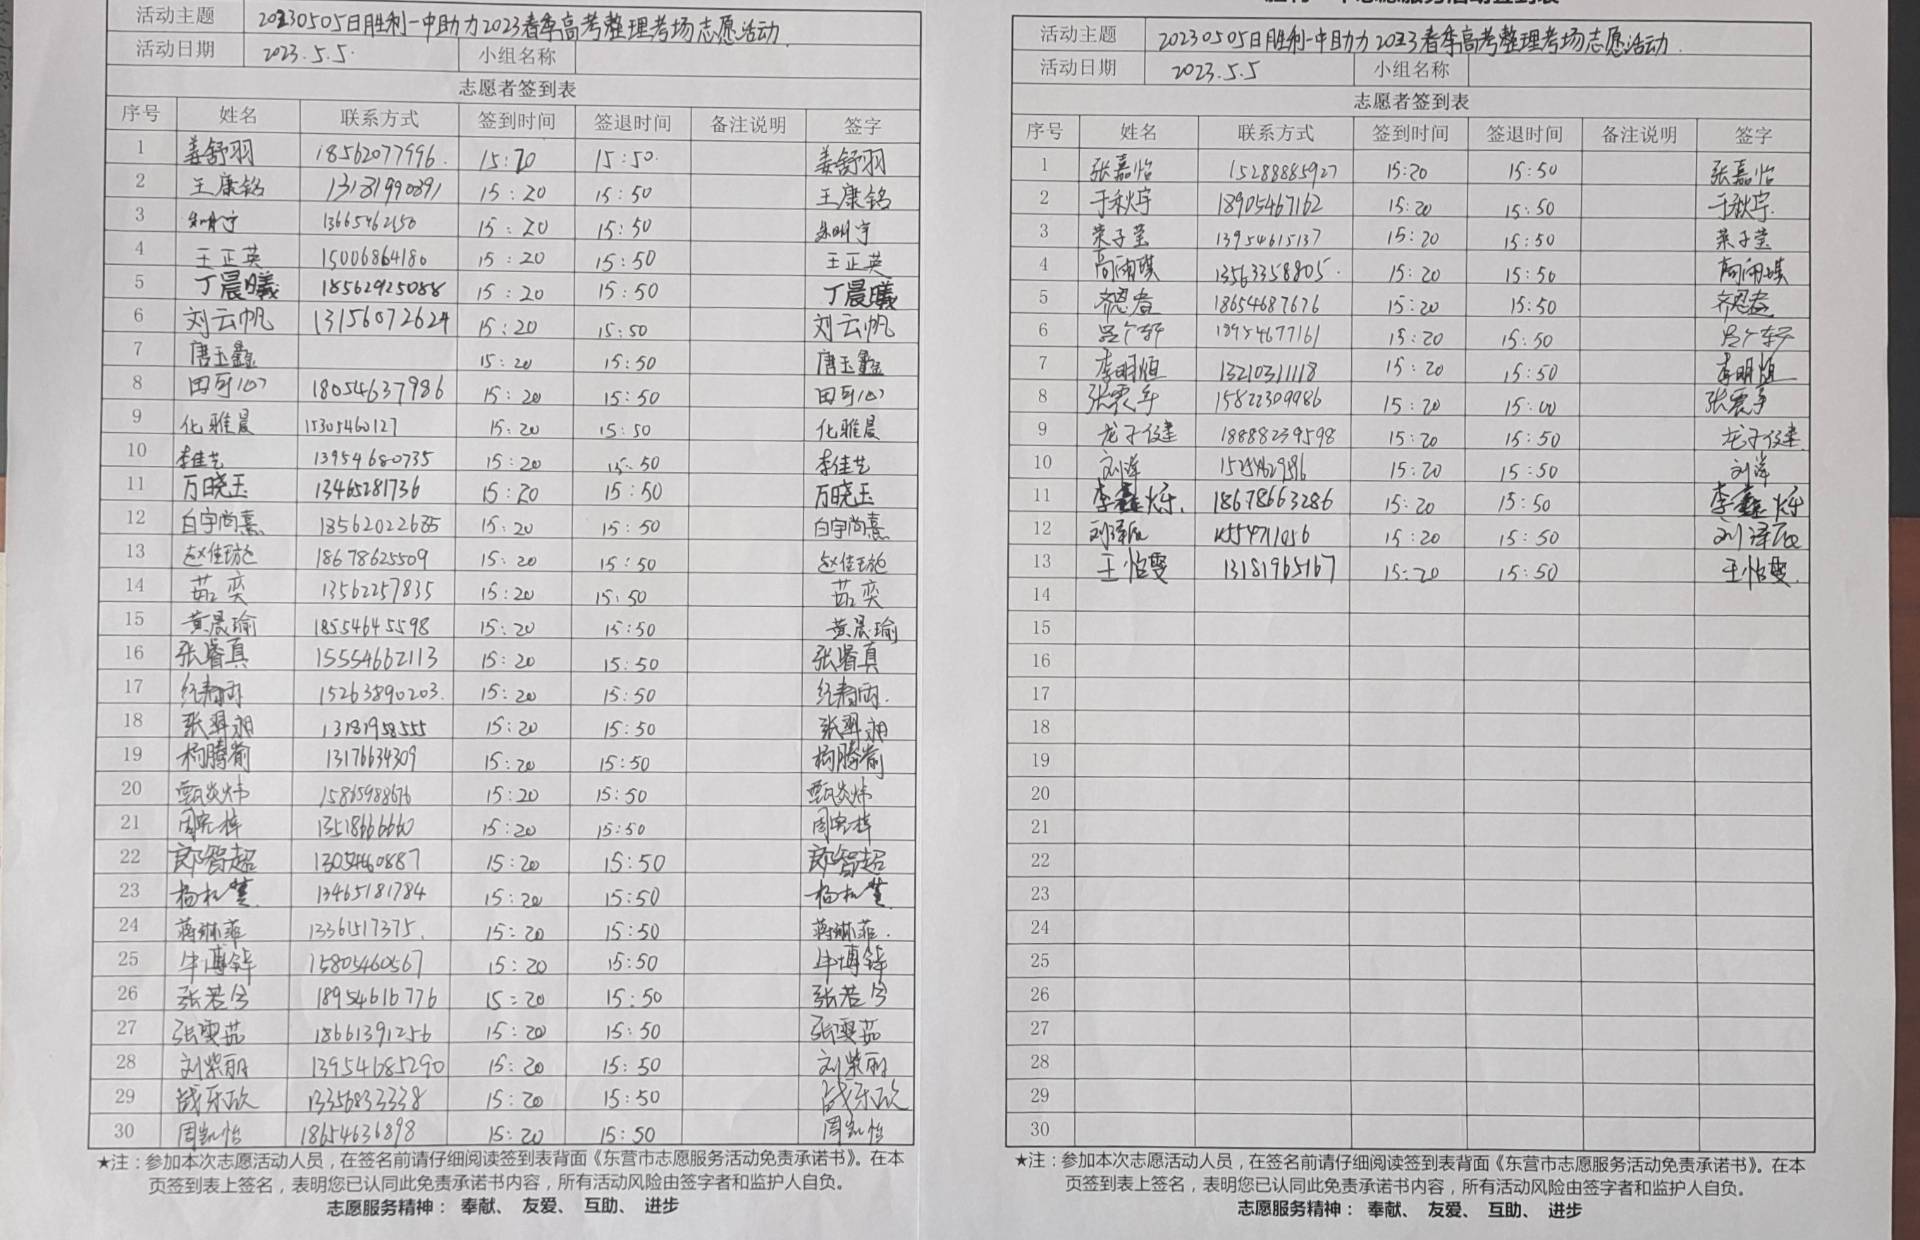 活动主题 20230505日胜利一中助力2023春季高考整理考场志愿活动
活动日期 2023.5.5. 小组名称
志愿者签到表
序号 姓名 联系方式 签到时间 签退时间 备注说明 签字
1 姜舒羽 18562077996. 15:20 15:50. 姜舒羽
2 王康铭 13181990891 15:20 15:50 王康铭
3 15:20 15:50
4 王正英 15006864180 15:20 15:50 王正英
5 丁晨曦 18562925088 15:20 15:50 丁晨曦
6 刘云帆 13156072624 15:20 15:50 刘云帆
7 唐玉鑫 15:20 15:50 唐玉鑫
8 田可心 18054637986 15:20 15:50 田可心
9 化雅晨 15305460127 15:20 15:50 化雅晨
10 李佳艺 13954680735 15:20 15:50 李佳艺
11 万晓玉 13465281736 15:20 15:50 万晓玉
12 白宇尚熹 18562022685 15:20 15:50 白宇尚熹
13 18678625509 15:20 15:50
14 茹奕 13562257835 15:20 15:50 茹奕
15 黄晨瑜 18554645598 15:20 15:50 黄晨瑜
16 张睿真 15554662113 15:20 15:50 张睿真
17 15263890203. 15:20 15:50
18 13181958555 15:20 15:50
19 13176634309 15:20 15:50
20 甄炎炜 15865988676 15:20 15:50 甄炎炜
21 13518666660 15:20 15:50
22 郎智超 13054460887 15:20 15:50 郎智超
23 13465181784 15:20 15:50
24 蒋琳菲 13361517375. 15:20 15:50 蒋琳菲.
25 牛博锌 15805460567 15:20 15:50 牛博锌
26 张若兮 18954616776 15:20 15:50 张若兮
27 张雯茹 18661391256 15:20 15:50 张雯茹
28 刘紫丽 13954685290 15:20 15:50 刘紫丽
29 战乐欣 13356833338 15:20 15:50 战乐欣
30 周凯怡 18654636898 15:20 15:50 周凯怡
★注：参加本次志愿活动人员，在签名前请仔细阅读签到表背面《东营市志愿服务活动免责承诺书》。在本
页签到表上签名，表明您已认同此免责承诺书内容，所有活动风险由签字者和监护人自负。
志愿服务精神： 奉献、 友爱、 互助、 进步
活动主题 20230505日胜利一中助力2023春季高考整理考场志愿活动.
活动日期 2023.5.5 小组名称
志愿者签到表
序号 姓名 联系方式 签到时间 签退时间 备注说明 签字
1 张嘉怡 15288885927 15:20 15:50 张嘉怡
2 于秋宇 18905467162 15:20 15:50 于秋宇.
3 荣子莹 13954615137 15:20 15:50 荣子莹
4 高雨琪 13563358805. 15:20 15:50 高雨琪
5 18654687676 15:20 15:50
6 18954677161 15:20 15:50
7 李明恒 13210311118 15:20 15:50 李明恒
8 张震宇 15822309986 15:20 15:00 张震宇
9 龙子健 18888239598 15:20 15:50 龙子健.
10 刘洋 15:20 15:50 刘洋
11 李鑫烁. 18678663286 15:20 15:50 李鑫烁
12 刘泽辰 15:20 15:50 刘泽辰
13 王怡雯 13181965167 15:20 15:50 王怡雯.
14
15
16
17
18
19
20
21
22
23
24
25
26
27
28
29
30
★注：参加本次志愿活动人员，在签名前请仔细阅读签到表背面《东营市志愿服务活动免责承诺书》。在本
页签到表上签名，表明您已认同此免责承诺书内容，所有活动风险由签字者和监护人自负。
志愿服务精神： 奉献、 友爱、 互助、 进步